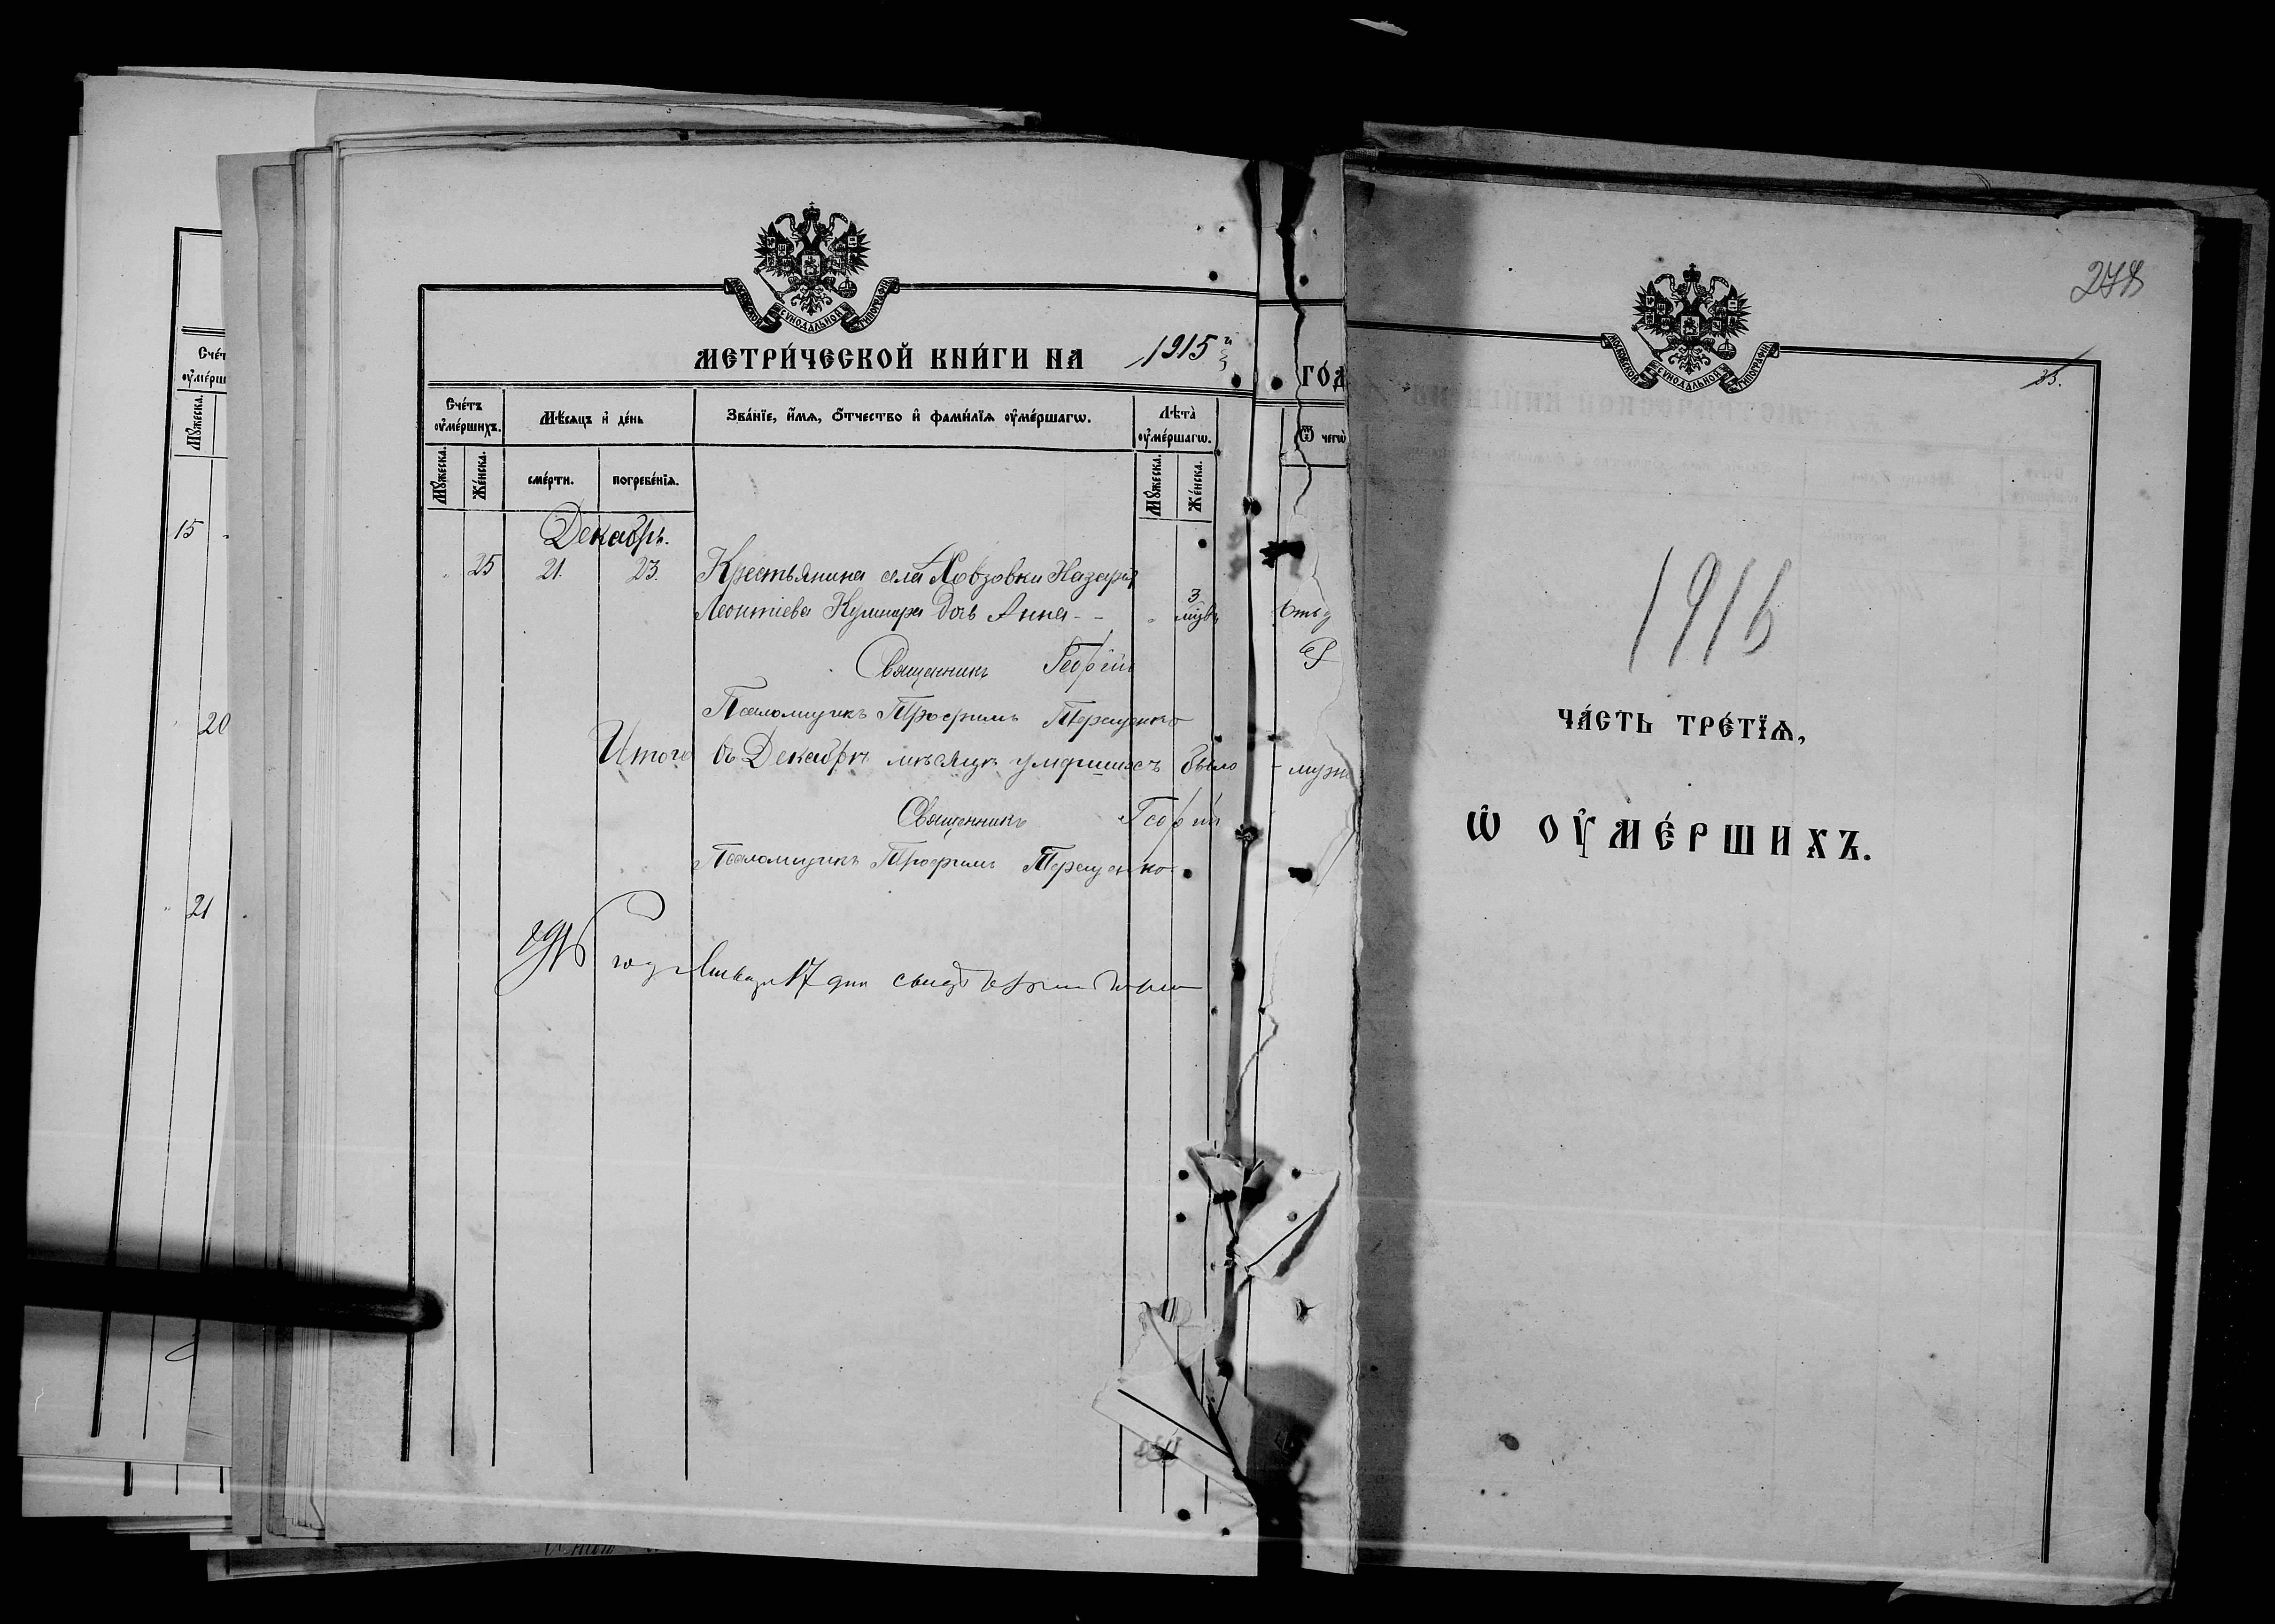 Счéтъ
ᲂу҆мéрш
Мꙋ́жеска.
15
20
21
МОСКОВСКОЙ СѴНОДАЛЬНОЙ ТИПОГРАФІИ
МЕТРИ́ЧЕСКОЙ КНИ́ГИ НА 1915 ГО́Д
Счéтъ ᲂу҆мéршихъ.
Мѣ́сяцъ и҆ дéнь
Звáнїе, и҆́мѧ, ѻ҆́тчество и҆ фами́лїѧ ᲂу҆мéршагѡ.
Лѣ̑та ᲂу҆мéршагѡ.
Ѿ чегѡ̀
Мꙋ́жеска.
Жéнска.
смéрти.
погребéнїѧ.
Мꙋ́жеска.
Жéнска.
Декабрь.
" 25 21. 23. Крестьянина села Ховзовки Назарія
Леонтіева Кушнира дочь Анна - - " 3 мѣс. Отъ
Священникъ Георгій
Псаломщикъ Трофимъ Терещенко
Итого въ Декабрѣ мѣсяцѣ умершихъ было - муж
Священникъ Георгій
Псаломщикъ Трофимъ Терещенко
1916 года Января 17 дня
278
МОСКОВСКОЙ СѴНОДАЛЬНОЙ ТИПОГРАФІИ
33.
1916
ЧА́СТЬ ТРЕ́ТЇѦ,
Ѽ ОУ҆МЕ́РШИХЪ.